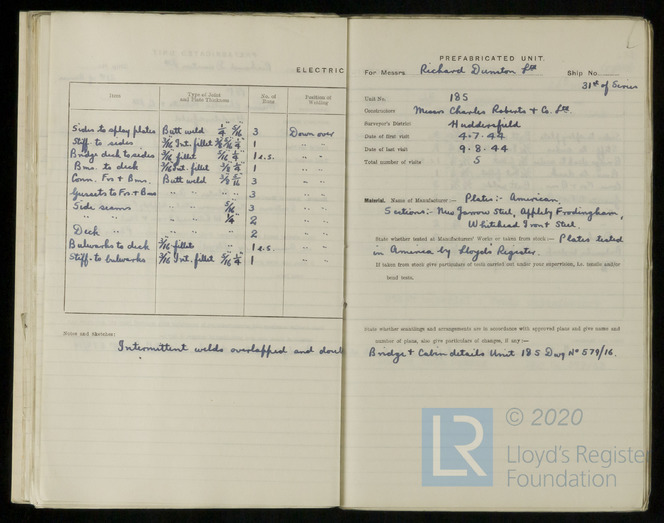 ELECTRIC
Item Type of Joint and State Thickness No. of Runs Position of Welding
Sides to splay plates Butt weld 1/4" 5/16" 3 Down over
Stiff. to sides 3/16 Int. fillet 1 " "
Bridge deck to sides 3/16 fillet 5/16 1/4 1 e.s. " "
Bms. to deck 3/16 Int. fillet 1 " "
Conn. Frs + Bms. Butt weld 3 " "
Gussets to Frs + Bms " " 3 " "
Side seams " " 5/16 3 " "
" " " " 1/4 2 " "
Deck " " " 2 " "
Bulwarks to deck 3/16 fillet " " 1 e.s. " "
Stiff. to bulwarks 3/16 Int. fillet 5/16 1/4 1 " "
Notes and Sketches:
Intermittent welds overlapped and doub
PREFABRICATED UNIT.
For Messrs Richard Dunston Ltd Ship No.
31st of Series
Unit No. 185
Constructors Messrs Charles Roberts & Co. Ltd.
Surveyor's District Huddersfield
Date of first visit 4.7.44
Date of last visit 9.8.44
Total number of visits 5
Material. Name of Manufacturer:— Plates:- American,
Sections:- New Jarrow Steel, Appleby Frodingham,
Whitehead Iron & Steel.
State whether tested at Manufacturers' Works or taken from stock:— Plates tested
in America by Lloyds Register.
If taken from stock give particulars of tests carried out under your supervision, i.e. tensile and/or
bend tests.
State whether scantlings and arrangements are in accordance with approved plans and give name and
number of plans, also give particulars of changes, if any:—
Bridge & Cabin details Unit 185 Dwg No 579/16.
LR
© 2020
Lloyd's Register
Foundation